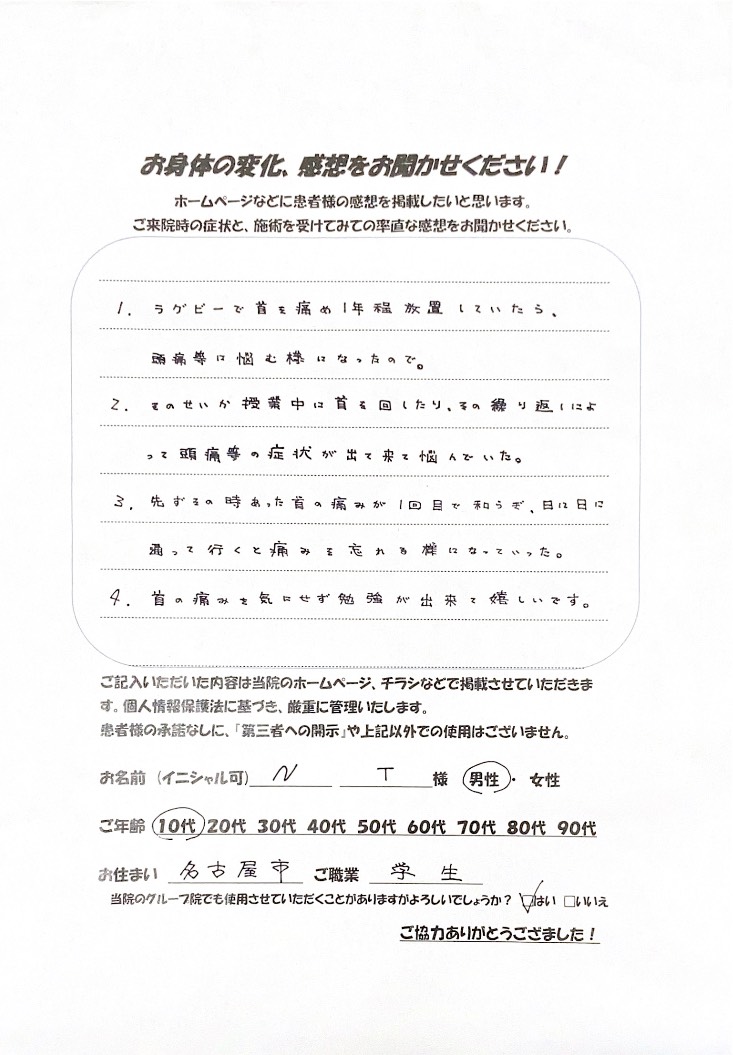 お身体の変化、感想をお聞かせください！
ホームページなどに患者様の感想を掲載したいと思います。
ご来院時の症状と、施術を受けてみての率直な感想をお聞かせください。
1. ラグビーで首を痛め1年程放置していたら、
頭痛等に悩む様になったので。
2. そのせいか授業中に首を回したり、その繰り返しによ
って頭痛等の症状が出て来て悩んでいた。
3. 先ずその時あった首の痛みが1回目で和らぎ、日に日に
通って行くと痛みを忘れる様になっていった。
4. 首の痛みを気にせず勉強が出来て嬉しいです。
ご記入いただいた内容は当院のホームページ、チラシなどで掲載させていただきま
す。個人情報保護法に基づき、厳重に管理いたします。
患者様の承諾なしに、「第三者への開示」や上記以外での使用はございません。
お名前（イニシャル可） N T 様 男性・女性
ご年齢 10代 20代 30代 40代 50代 60代 70代 80代 90代
お住まい 名古屋市 ご職業 学生
当院のグループ院でも使用させていただくことがありますがよろしいでしょうか？ ☑はい □いいえ
ご協力ありがとうござました！